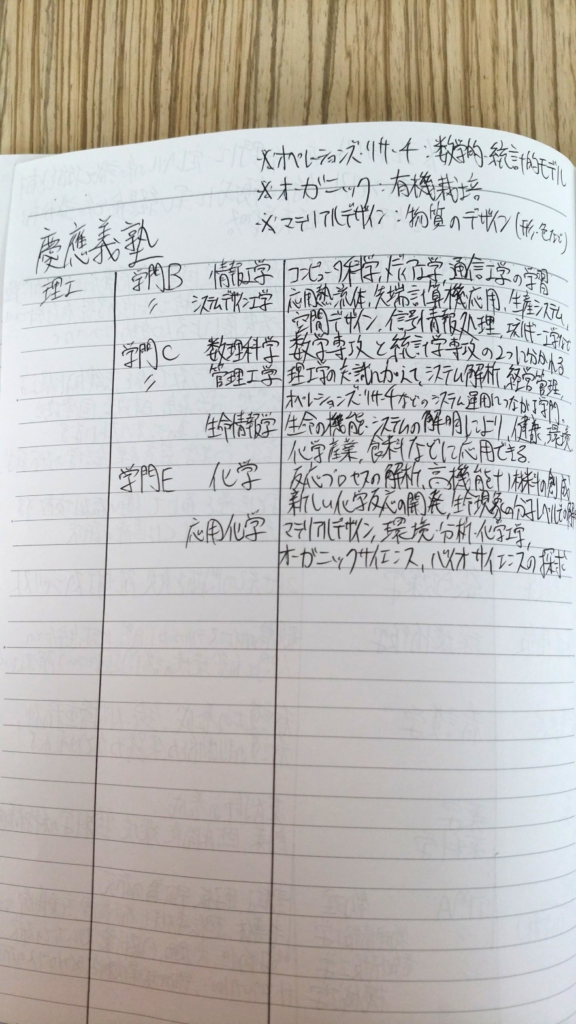 ※オペレーションズ・リサーチ:数学的・統計的モデル
※オーガニック:有機栽培
※マテリアルデザイン:物質のデザイン(形・色など)
慶應義塾
理工 学門B 情報工学 コンピュータ科学,メディア工学,通信工学の学習
〃 システムデザイン工学 応用熱流体,先端計算機応用,生産システム,
空間デザイン,信号情報処理,エネルギー工学など
学門C 数理科学 数学専攻と統計学専攻の2つにわかれる
〃 管理工学 理工学の知識に加えて,システム解析,経営管理,
オペレーションズ・リサーチなどのシステム運用につながる学門
生命情報学 生命の機能・システムの解明により,健康,環境
化学産業,食料などに応用できる
学門E 化学 反応プロセスの解析,高機能材料の創成
新しい化学反応の開発,生命現象の分子レベルでの
応用化学 マテリアルデザイン,環境・分析・化学工学,
オーガニックサイエンス,バイオサイエンスの探求